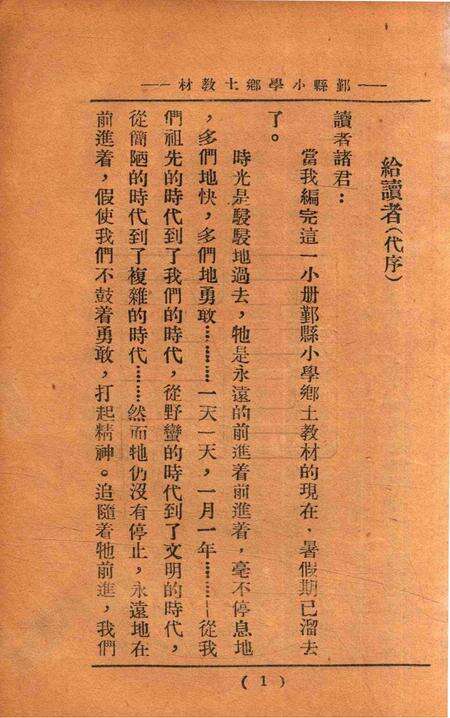 鄞縣小學鄉土教材
給讀者(代序)
讀者諸君：
當我編完這一小册鄞縣小學鄉土教材的現在．暑假期已溜去
了。
時光是駸駸地過去，牠是永遠的前進着前進着，毫不停息地
，多們地快，多們地勇敢…………一天一天，一月一年………—從我
們祖先的時代到了我們的時代，從野蠻的時代到了文明的時代，
從簡陋的時代到了複雜的時代………然而牠仍沒有停止，永遠地在
前進着，假使我們不鼓着勇敢，打起精神。追隨着牠前進，我們
(1)